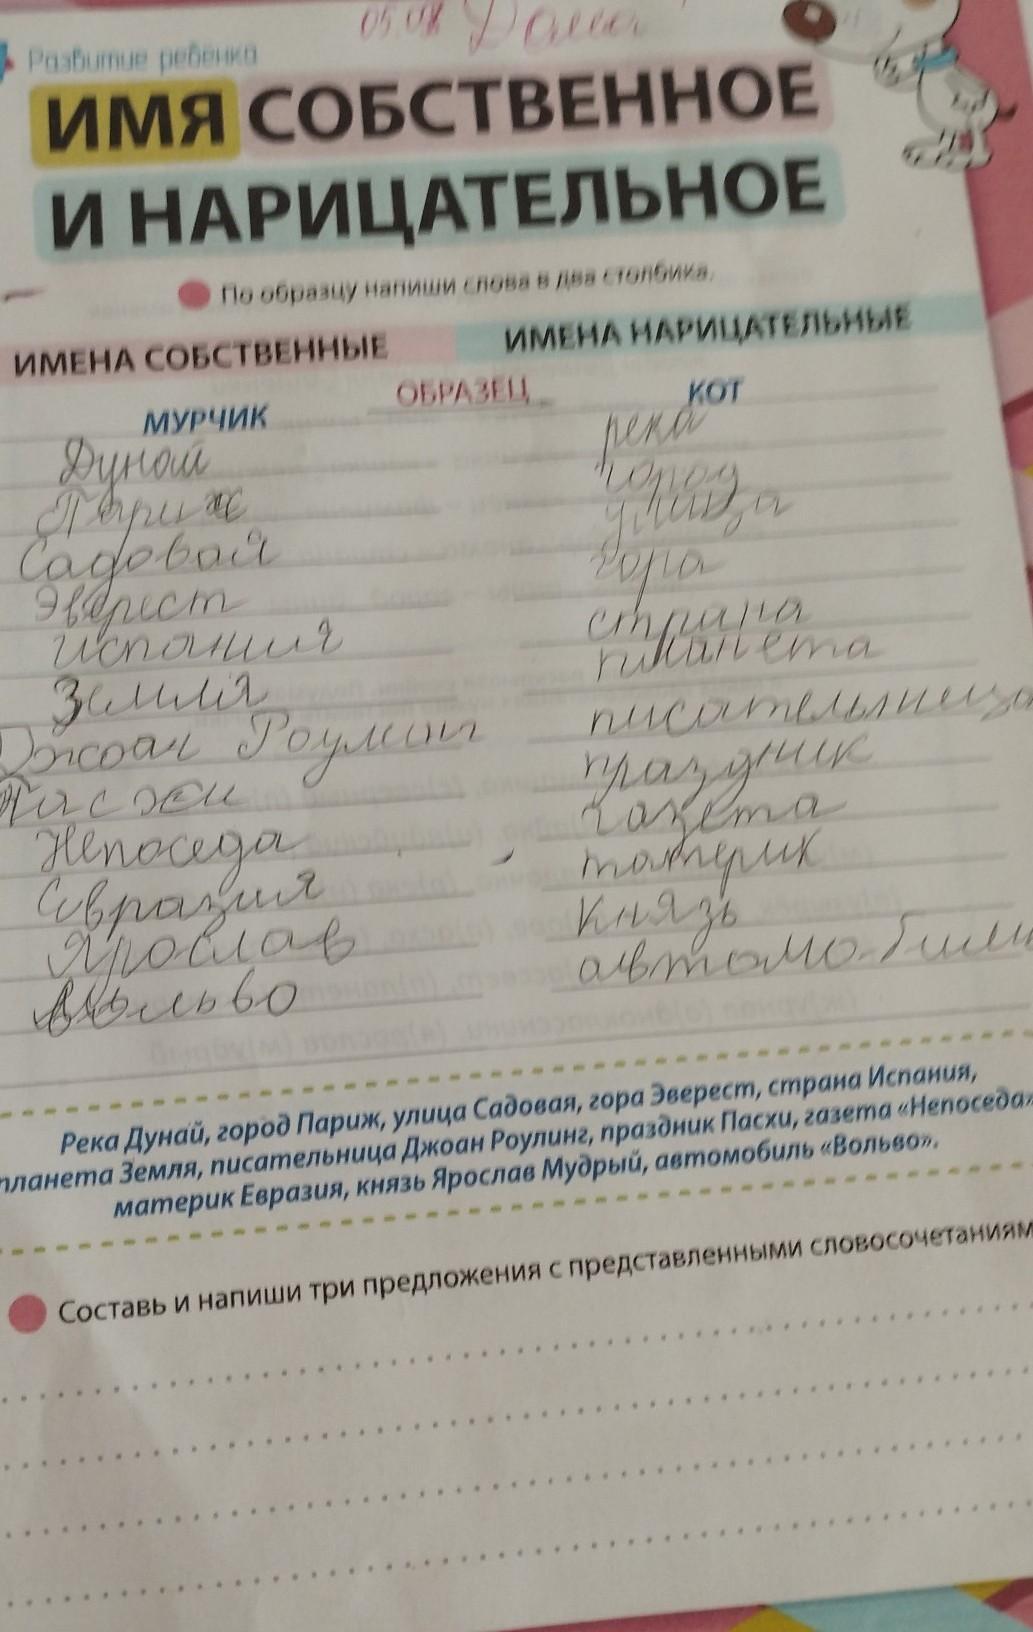 05.08 Дома
Развитие ребёнка
ИМЯ СОБСТВЕННОЕ
И НАРИЦАТЕЛЬНОЕ
По образцу напиши слова в два столбика.
ИМЕНА СОБСТВЕННЫЕ ИМЕНА НАРИЦАТЕЛЬНЫЕ
ОБРАЗЕЦ
МУРЧИК КОТ
Дунай река
Париж город
Садовая улица
Эверест гора
Испания страна
Земля планета
Джоан Роулинг писательница
Пасхи праздник
Непоседа газета
Евразия материк
Ярослав князь
Вольво автомобиль
Река Дунай, город Париж, улица Садовая, гора Эверест, страна Испания,
планета Земля, писательница Джоан Роулинг, праздник Пасхи, газета «Непоседа»
материк Евразия, князь Ярослав Мудрый, автомобиль «Вольво».
Составь и напиши три предложения с представленными словосочетаниям